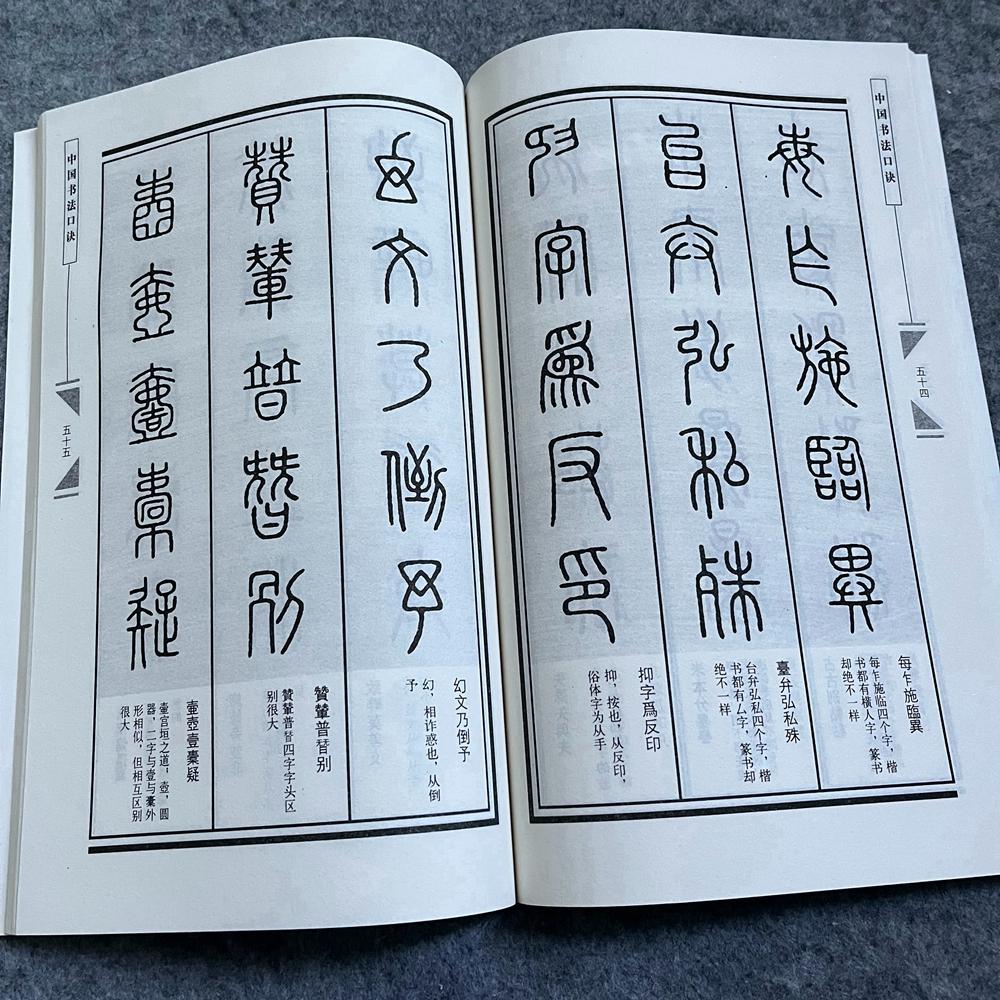 中国书法口诀
五十四
每乍施臨異
每乍施臨異
每乍施临四个字，楷
书都有横人字，篆书
却绝不一样
台弁弘私殊
臺弁弘私殊
台弁弘私四个字，楷
书都有厶字，篆书却
绝不一样
抑字爲反印
抑字爲反印
抑，按也，从反印，
俗体字为从手
幻文乃倒予
幻文乃倒予
幻，相诈惑也，从倒
予
贊輦普朁别
贊輦普朁别
贊輦普朁四字字头区
别很大
壼壺壹橐疑
壼壺壹橐疑
壼宫垣之道，壶，圆
器，二字与壹与橐外
形相似，但相互区别
很大
中国书法口诀
五十五